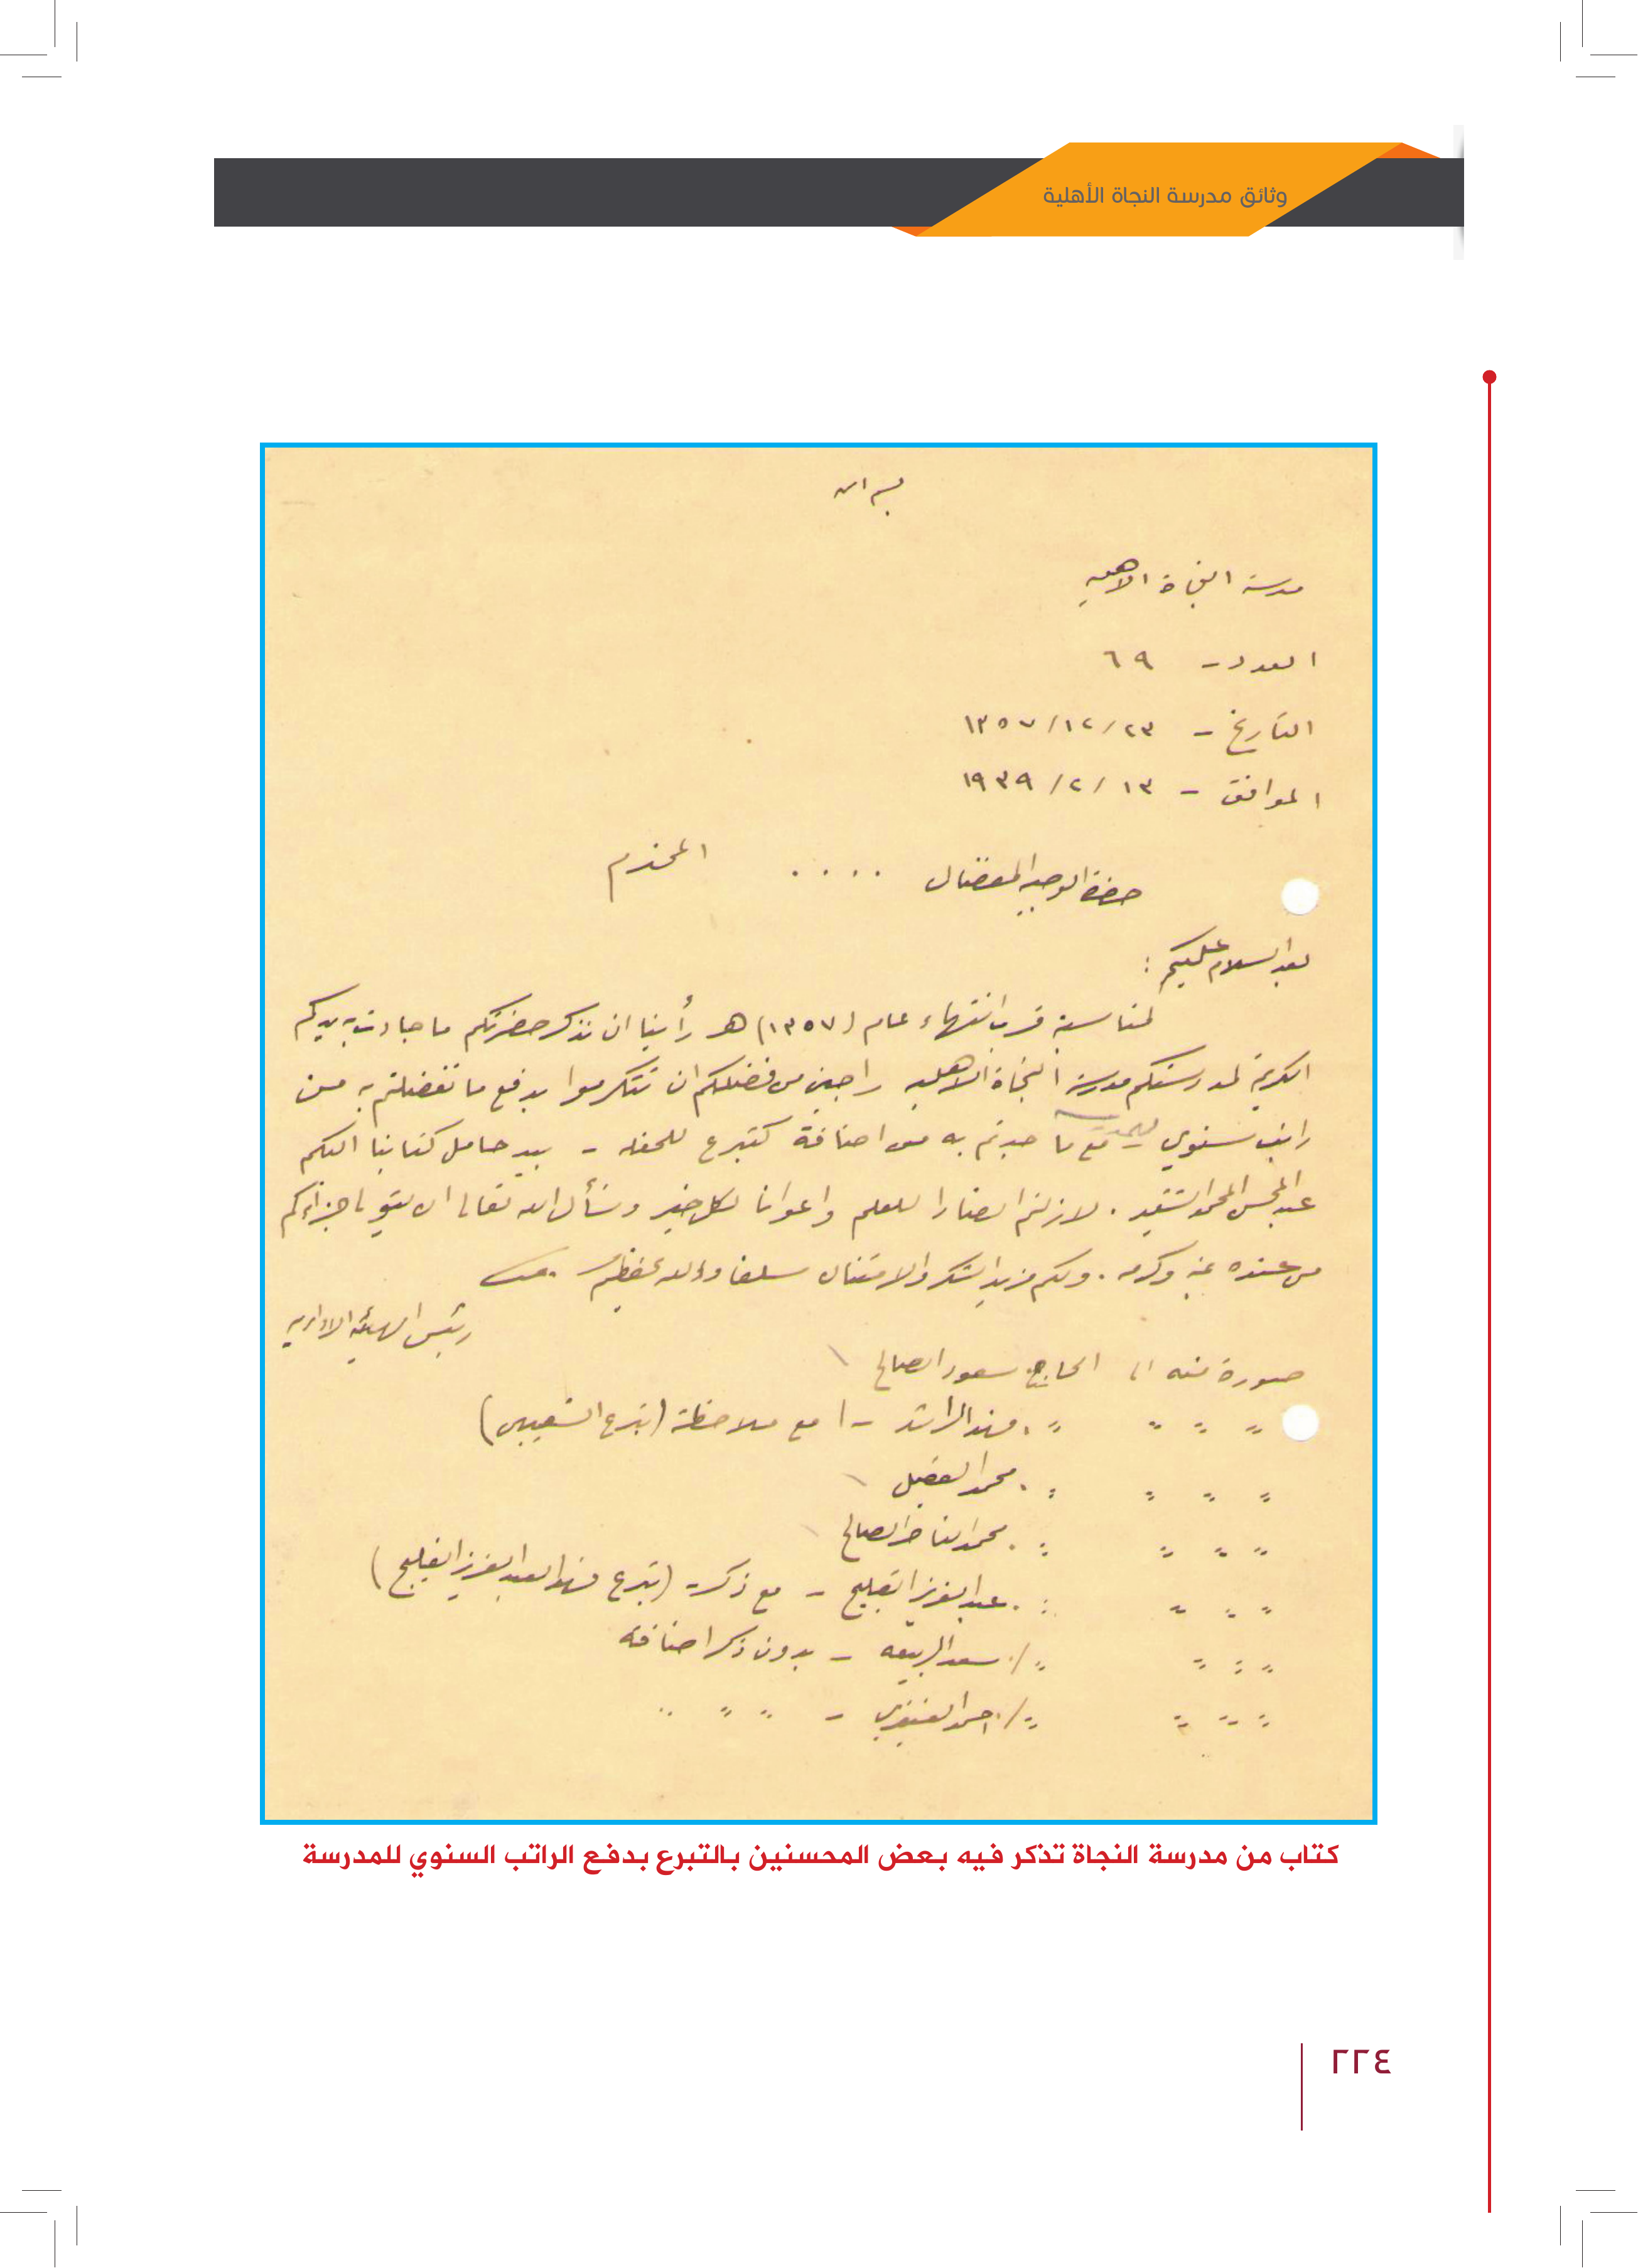 وثائق مدرسة النجاة الأهلية
بسم الله
مدرسة النجاة الاهليه
العدد - ٦٩
التاريخ - ٢٣/ ١٢/ ١٣٥٧
الموافق - ١٣/ ٢/ ١٩٣٩
حضرة الوجيه المفضال .... المحترم
بعد السلام عليكم :
لمناسبة قرب انتهاء عام (١٣٥٧) هـ رأينا ان نذكر حضرتكم ما جادت به يدكم
الكريمة لمدرستكم مدرسة النجاة الاهليه راجين من فضلكم ان تتكرموا بدفع ما تفضلتم به من
راتب سنوي مع ما جدتم به من اضافة كتبرع للحفله - بيد حامل كتابنا اليكم
عبد المحسن المحمد الشقير . لازلتم انصارا للعلم واعوانا لكل خير ونسأل الله تعالى ان يتولى جزاءكم
من عنده بمنه وكرمه . ولكم مزيد الشكر والامتنان سلفا والله يحفظكم .
رئيس الهيئة الاداريه
صورة منه الى الحاج سعود الصالح
" " " " . فهد الراشد - ا مع ملاحظة (تبرع الشعيبي)
" " " " . محمد العقيل
" " " " . محمد الناصر الصالح
" " " " . عبد العزيز الفليج - مع ذكر (تبرع فهد العبد العزيز الفليج)
" " " "/. سعد الربيعه - بدون ذكر اضافه
" " " "/. احمد - " " "
كتاب من مدرسة النجاة تذكر فيه بعض المحسنين بالتبرع بدفع الراتب السنوي للمدرسة
٢٢٤